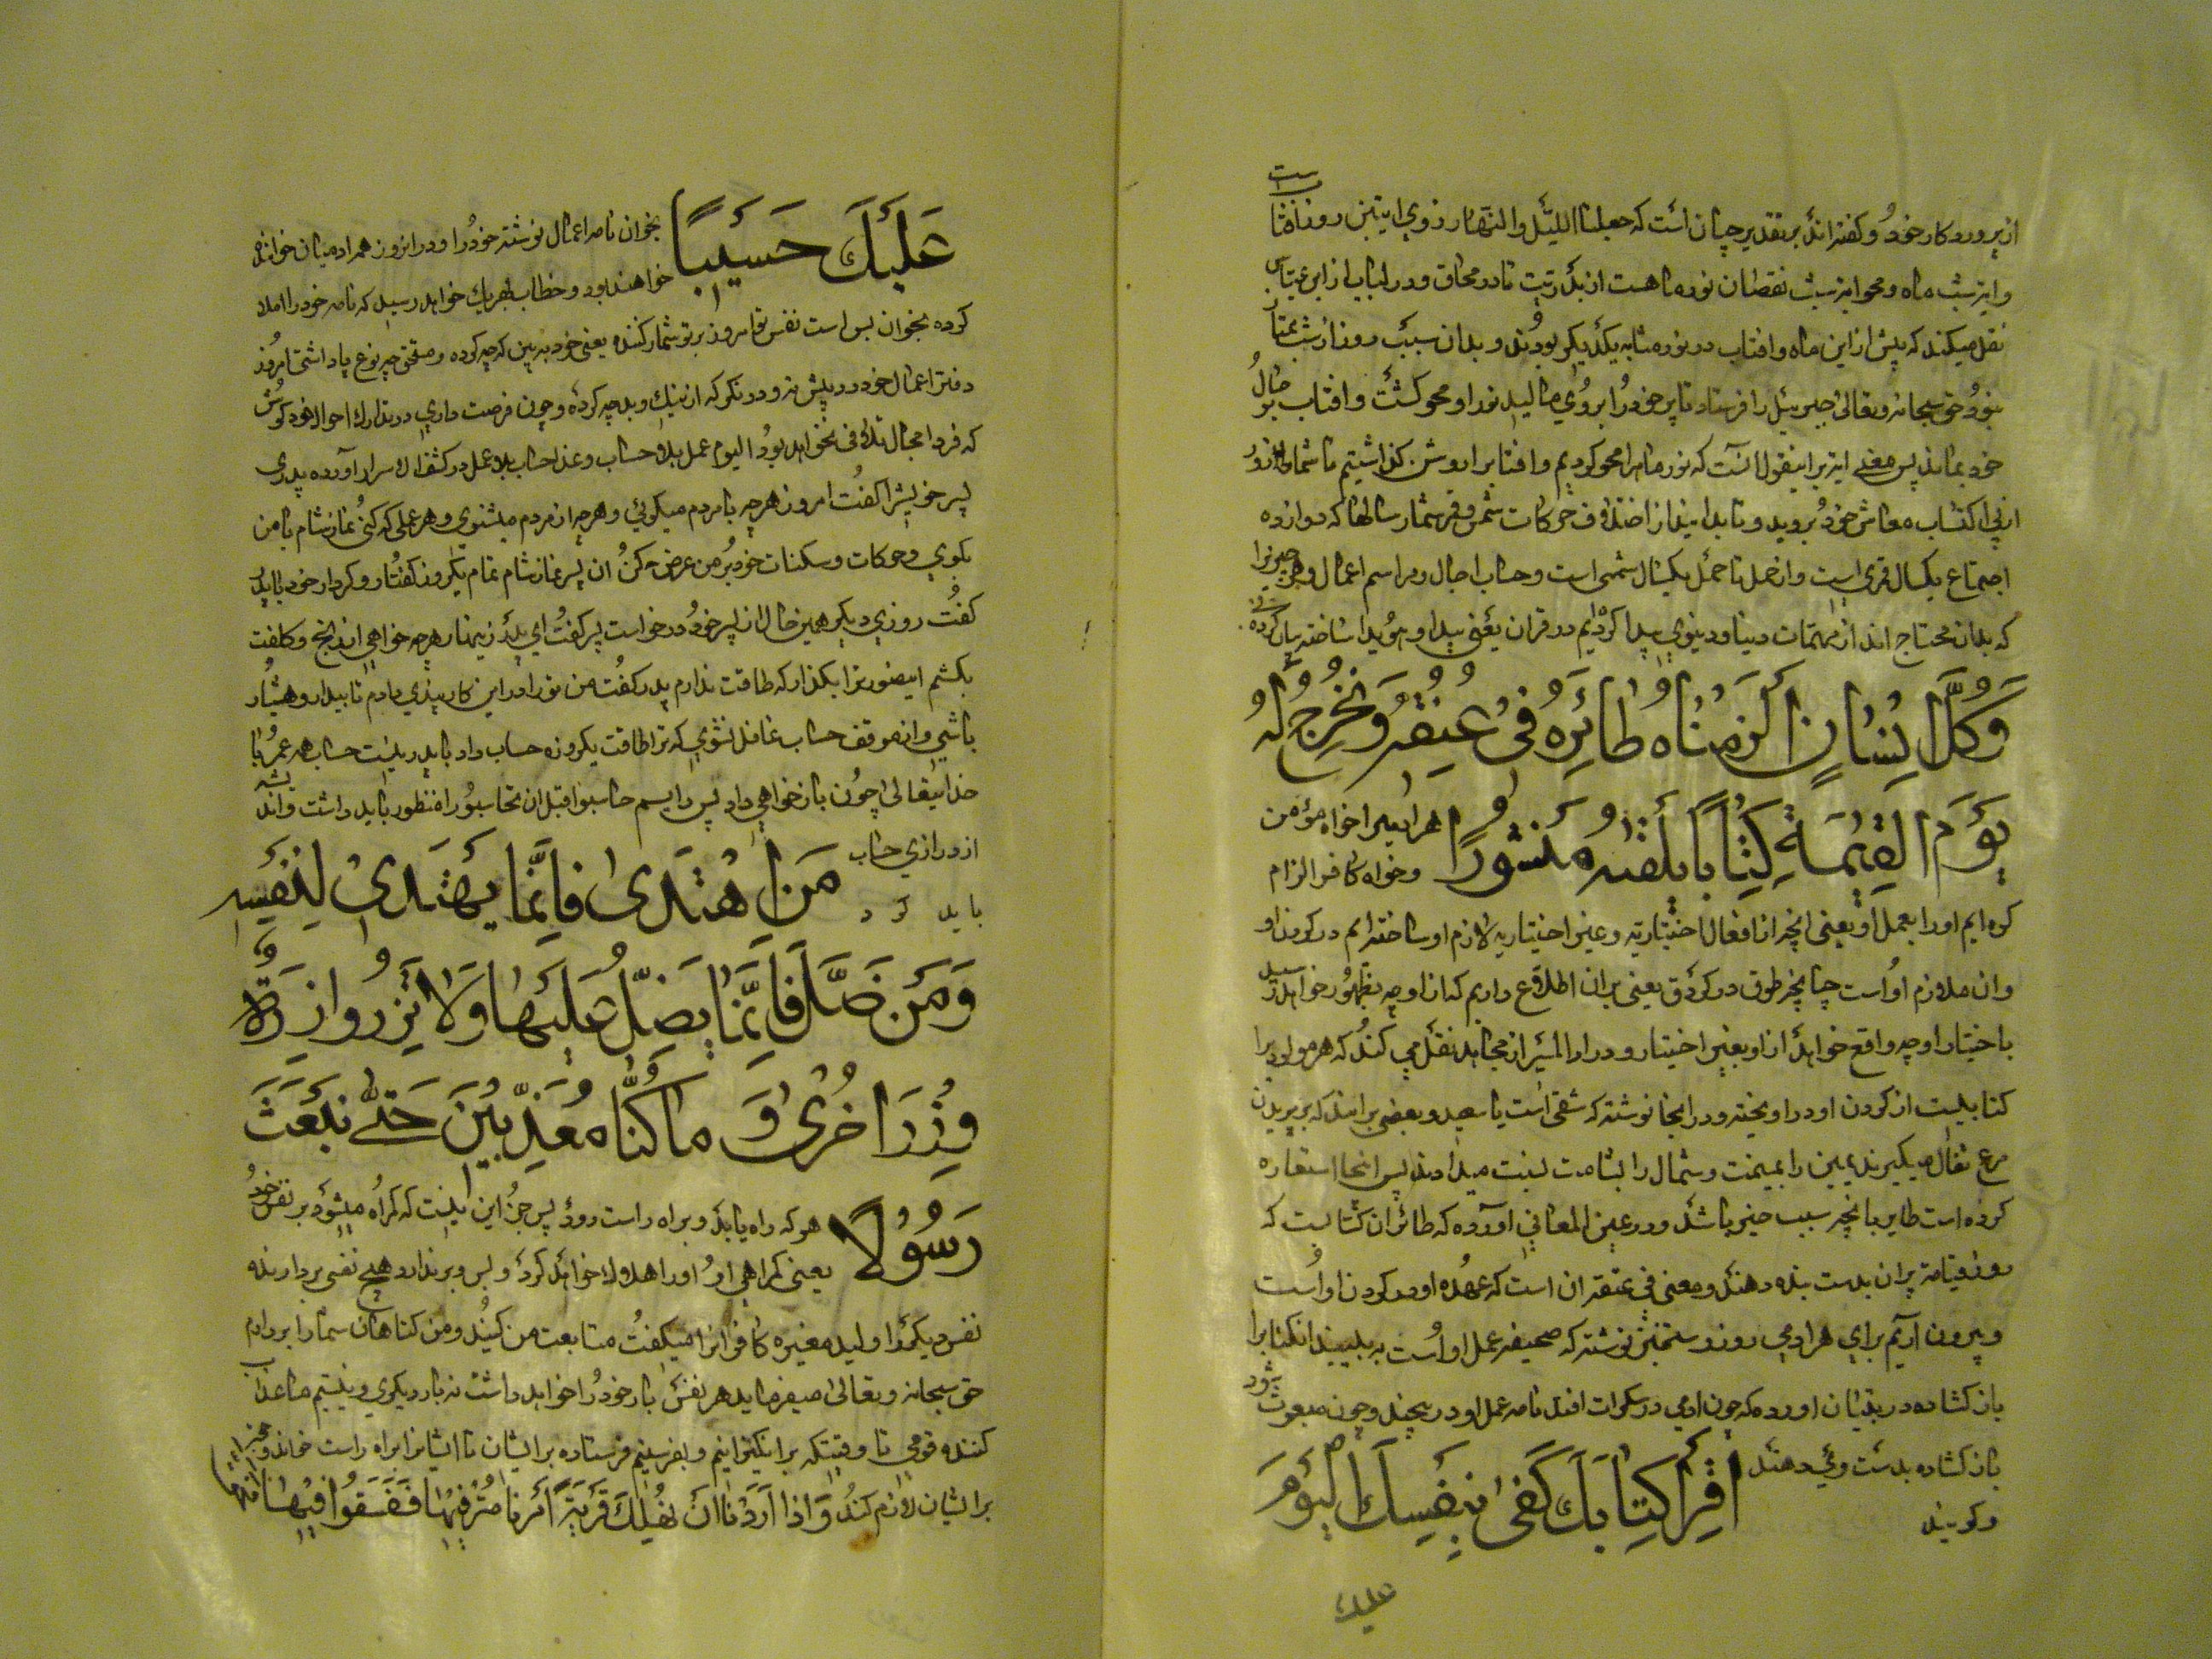 است
از پروردکار خود و کفته اند بر تقدیر چنان است که جعلنا اللیل والنهار ذوی ایتین روز افتاب
وایه شب ماه و محو ایه شب نقصان نور ماهست از بدریت تا در محاق و در لباب از ابن عباس
نقل میکند که پیش ازاین ماه وافتاب در نور مشابه یکدیکر بودند و بدان سبب روز از شب ممتاز
نبود حق سبحانه وتعالی جبرییل را فرستاد تا پر خود را بروی مالید نور او محو کشت وافتاب بر حال
خود بماند پس معنی ایه براینقول آنست که نور ماه را محو کردیم وافتابرا روشن کذاشتیم تا شما
از پی اکتساب معاش خود بروید و تا بدانید از اختلاف حرکات شمس و قمر شمار سالها که دوازده
اجتماع یکسال قمری است و از حمل تا حمل یکسال شمسی است و حساب اجال و مراسم اعمال و هر چیزرا
که بدان محتاج اند از مهمات دینی ودنیوی پیدا کردیم در قران یعنی پیدا و هویدا ساخته بیان کرده
وَكُلَّ اِنسَانٍ اَلزَمنَاهُ طَائِرَهُ فِی عُنُقِهِ وَنُخرِجُ لَهُ
یَومَ القِیٰمَةِ كِتَابًا یَلقٰهُ مَنشُورًا هر ادمیرا خواه مؤمن
وخواه کافر الزام
کرده ایم اورا بعمل او یعنی انچه از افعال اختیاریه وغیر اختیاریه لازم او ساخته ایم در کردن او
وان ملازم اواست چنانچه طوق در کردن یعنی بران اطلاع داریم که از او چه بظهور خواهد رسید
باختیار او چه واقع خواهد از او بغیر اختیار و در زاد المسیر از مجاهد نقل می کند که هر مولودیرا
کتابیست از کردن او در اویخته و در انجا نوشته که شقی است یا سعید وبعضی برانند که عرب بپریدن
مرغ تفال میکیرند یمین را بمیمنت وشمال را بشامت نسبت میدادند پس اینجا استعاره
کرده است طایر بانچه سبب خیر باشد و در عین المعانی اورده که طائر ان کتابست که
روز قیامة پران بدست بنده دهند ومعنی فی عنقه ان است که عهده او در کردن اواست
وبیرون آریم برای هر ادمی روز رستخیز نوشته که صحیفه عمل اواست به بیند انکتابرا
باز کشاده در بتیان اورده که چون ادمی در سکرات افتد نامه عمل او در پیچند و چون مبعوث شود
باز کشاده بدست وی دهند
وکویند
اِقرَا كِتَابَكَ كَفٰی بِنَفسِكَ الیَومَ
علیک
عَلَیكَ حَسِیبًا بخوان نامه اعمال نوشته خود را و درانروز همه ادمیان خوانده
خواهند بود و خطاب بهریک خواهد رسید که نامه خود را املا
کرده بخوان بس است نفس تو امروز بر تو شمار کننده یعنی خود به بین که چه کرده ومستحق چه نوع پاداشتی امروز
دفتر اعمال خود در پیش نه و درنکر که از نیک وبد چه کرده وچون فرصت داری در تدارک احوال خود کوش
که فردا مجال تلافی نخواهد بود الیوم عمل بلا حساب وغدا حساب بلا عمل در کشف الاسرار آورده پدری
پسر خویشرا کفت امروز هرچه با مردم میکوئی وهرچه از مردم میشنوی وهر عملی که کنی نماز شام با من
بکوی وحرکات وسکنات خود بر من عرض کن ان پسر نماز شام تمام یکروزه کفتار وکردار خود با پدر
کفت روزی دیکر همین حال از پسر خود درخواست پسر کفت ای پدر زینهار هرچه خواهی از رنج وکلفت
بکشم اینصورترا بکذار که طاقت ندارم پدر کفت من ترا دراین کار پندی دادم تا بیدار وهشیار
باشی واز موقف حساب غافل نشوی که ترا طاقت یکروزه حساب دادن با پدر نیست حساب همه عمر با
خدایتعالی چون بازخواهی داد پس را بسم حاسبوا قبل ان تحاسبوا را منظور باید داشت واندیشه
از درازی حساب
باید کرد
مَنِ اهتَدٰی فَاِنَّمَا یَهتَدِی لِنَفسِهِ
وَمَن ضَلَّ فَاِنَّمَا یَضِلُّ عَلَیهَا وَلَا تَزِرُ وَازِرَةٌ
وِزرَ اُخرٰی وَ مَا كُنَّا مُعَذِّبِینَ حَتّٰی نَبعَثَ
رَسُولًا هرکه راه یابد وبراه راست رود پس جز این نیست که کمراه میشود بر نفس خود
یعنی کمراهی او اورا هلاک خواهد کرد و بس وبرندارد هیچ نفسی بردارنده
نفس دیکررا ولید مغیره کافرانرا میکفت متابعت من کنید ومن کناهان شما را بردارم
حق سبحانه وتعالی میفرماید هر نفس بار خود را خواهد داشت نه بار دیکری ونیستیم ما عذاب
کننده قومی تا وقتیکه برانکیزانیم وبفرستیم فرستاده برایشان تا ایشانرا براه راست خواند
برایشان لازم کند وَاِذَا اَرَدنَا اَن نُهلِكَ قَریَةً اَمَرنَا مُترَفِیهَا فَفَسَقُوا فِیهَا